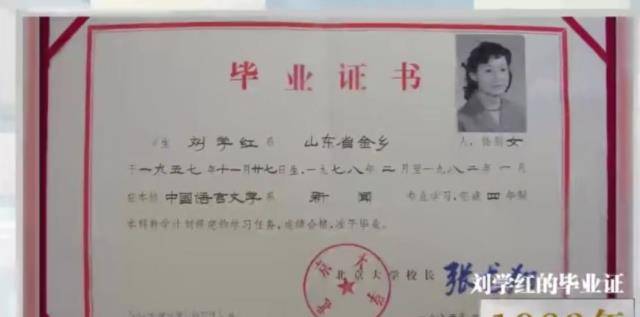 毕业证书
学生 刘学红 系 山东省金乡 人，性别 女
于一九五七年十一月廿七日生，一九七八年二月至一九八二年一月
在本校 中国语言文学系 新闻 专业学习，完成四年制
本科教学计划规定的学习任务，成绩合格，准予毕业。
北京大学校长
刘学红的毕业证